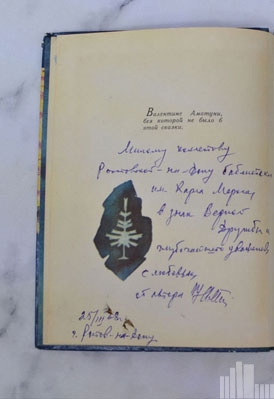 Валентине Аматуни,
без которой не было б
этой сказки.
Милому коллективу
Ростовской-на-Дону библиотеки
им. Карла Маркса
в знак верной
дружбы и
глубочайшего уважения,
с любовью
от автора
г. Ростов-на-Дону